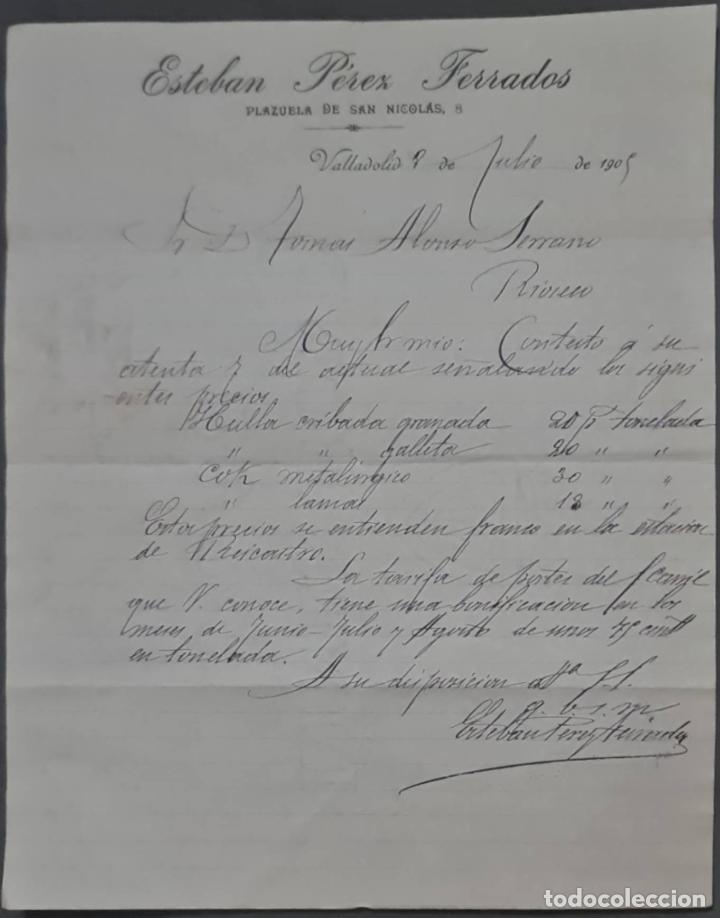 Esteban Pérez Ferrados
PLAZUELA DE SAN NICOLÁS, 8
Valladolid 8 de Julio de 1905
Sr D Tomas Alonso Serrano
Rioseco
Muy Sr mio: Contesto á su
atenta 7 del actual señalando los sigui
entes precios
Hulla cribada granada 20 P tonelada
" " galleta 20 " "
Cok metalúrgico 30 " "
" lamal 18 " "
Estos precios se entienden franco en la estacion
de
La tarifa de portes del f carril
que V. conoce, tiene una bonificacion en los
meses de Junio-Julio y Agosto de unos 75 cent
en tonelada.
A su disposicion S.S.
q. b. s. m
Esteban Perez Ferrados
todocoleccion